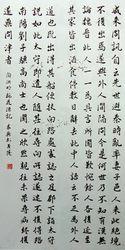 咸來問訊自云先世避秦時亂率妻子邑人來此
絕境不復出焉遂與外人間隔問今是何世乃不知有漢
無論魏晉此人一一為具言所聞皆嘆惋餘人各復延至
其家皆出酒食停數日辭去此中人語云不足為外人
道也既出得其船便扶向路處處誌之及郡下詣太守
說如此太守即遣人隨其往尋向所誌遂迷不復得路
南陽劉子驥高尚士也聞之欣然規往未果尋病終後
遂無問津者 陶淵明桃花源記